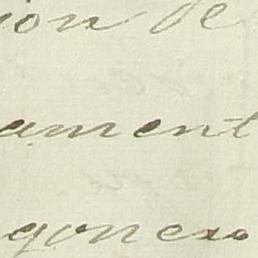 ion de
ament
gones